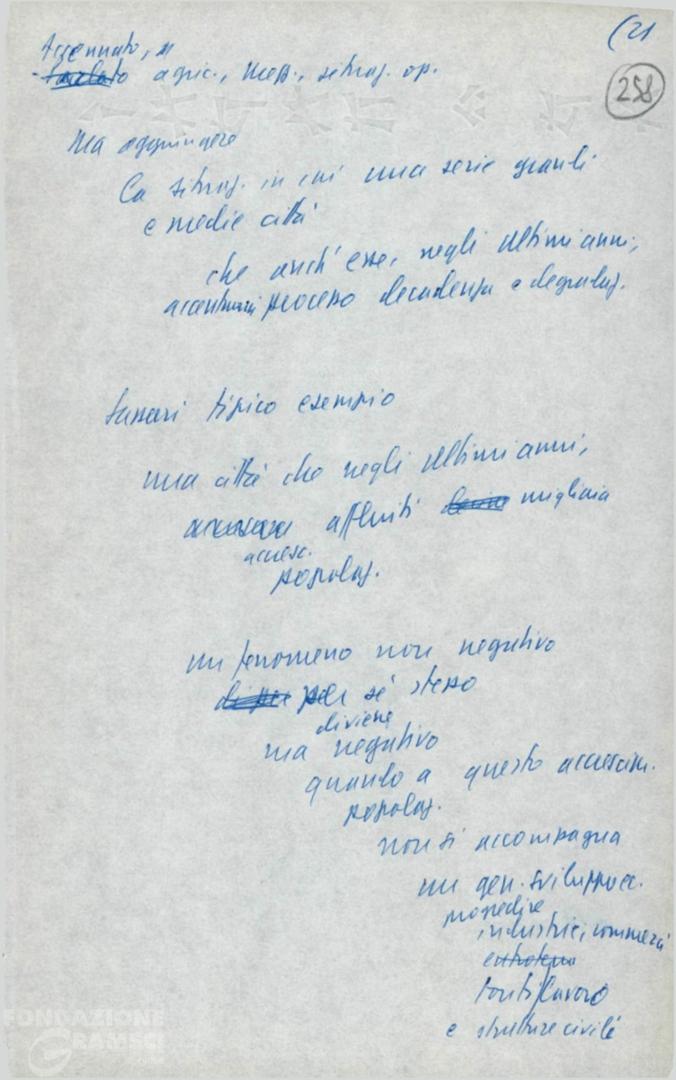 (21
258
Accennato, a
agric., Mer., situaz. op.
Ma aggiungere
la situaz. in cui una serie grandi
e medie città
che anch'esse, negli ultimi anni,
processo decadenza e degradaz.
Sassari tipico esempio
una città che negli ultimi anni,
affluiti migliaia
accresc.
popolaz.
un fenomeno non negativo
per sé stesso
diviene
ma negativo
quando a questo accrescim.
popolaz.
non si accompagna
un gen. sviluppo ec.
industrie, commerci
entroterra
fonti lavoro
e strutture civili
FONDAZIONE
GRAMSCI